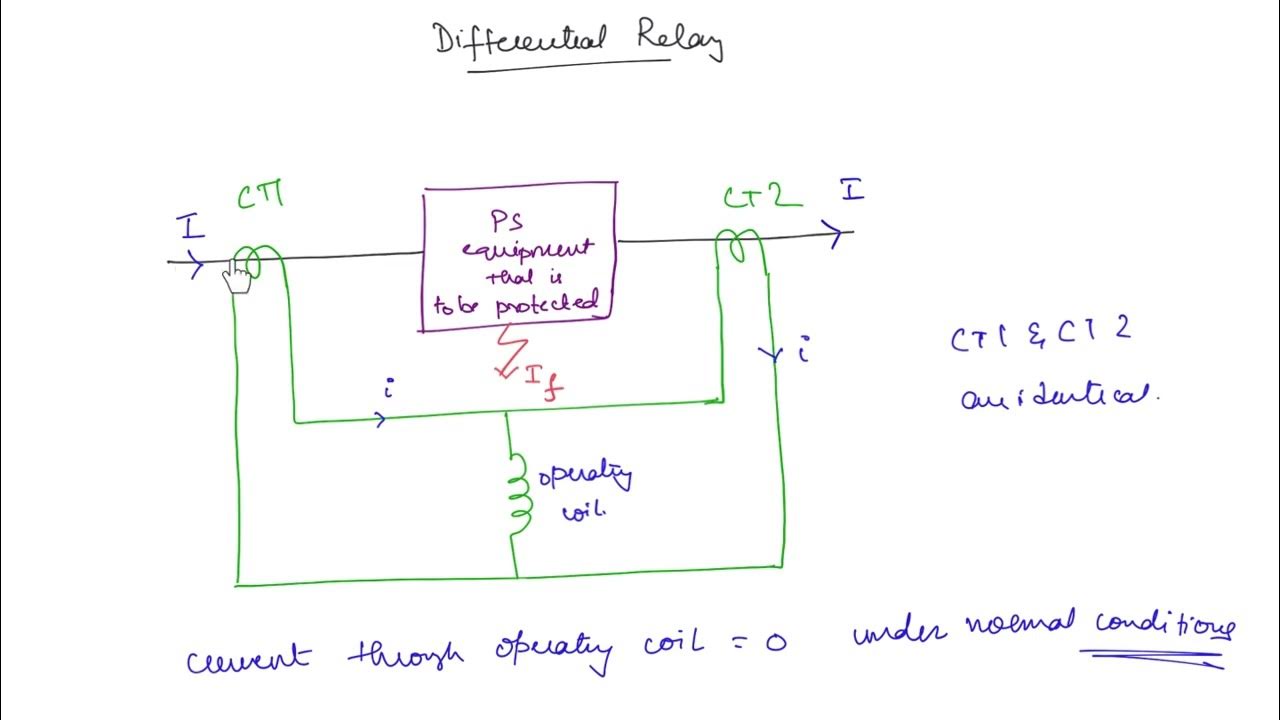 Differential Relay
CT1
CT2
I
I
PS
equipment
that is
to be protected
If
i
i
CT1 & CT2
are identical.
operating
coil.
current through operating coil = 0 under normal conditions